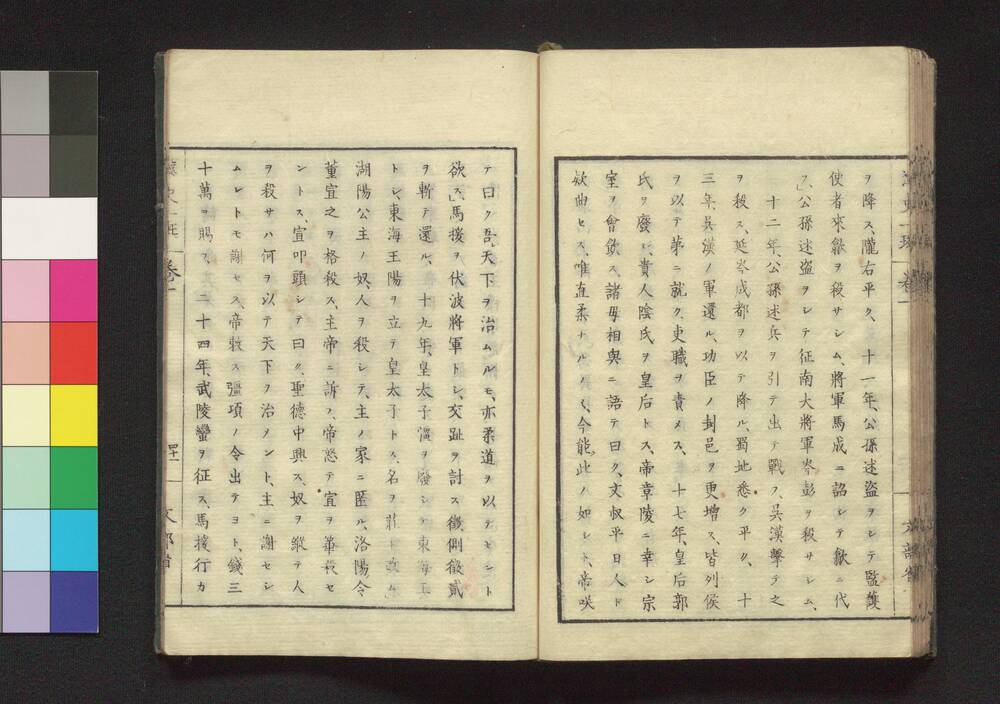 ヲ降ス、隴右平ク、十一年、公孫述盗ヲシテ監護
使者來歙ヲ殺サシム、將軍馬成ニ詔シテ歙ニ代
フ、公孫述盗ヲシテ征南大將軍岑彭ヲ殺サシム、
十二年、公孫述兵ヲ引テ出テ戰フ、呉漢擊テ之
ヲ殺ス、延岑成都ヲ以テ降ル、蜀地悉ク平ク、十
三年、呉漢ノ軍還ル、功臣ノ封邑ヲ更增ス、皆列侯
ヲ以テ第ニ就ク、吏職ヲ責メス、十七年、皇后郭
氏ヲ廢シ、貴人陰氏ヲ皇后トス、帝章陵ニ幸シ宗
室ヲ會飲ス、諸母相與ニ語テ曰ク、文叔平日人ト
欵曲セス、唯直柔ナルノミ、今能此ノ如シト、帝咲
テ曰ク吾、天下ヲ治ムルモ、亦柔道ヲ以テセント
欲ス」馬援ヲ伏波將軍トシ、交趾ヲ討ス徴側徴貳
ヲ斬テ還ル、十九年、皇太子彊ヲ廢シテ東海王
トシ、東海王陽ヲ立テ皇太子トス、名ヲ莊ト改ム
湖陽公主ノ奴、人ヲ殺シテ、主ノ家ニ匿ル、洛陽令
董宣之ヲ格殺ス、主帝ニ訴フ、帝怒テ宣ヲ箠殺セ
ントス、宣叩頭シテ曰ク、聖德中興ス、奴ヲ縱テ人
ヲ殺サハ何ヲ以テ天下ヲ治メント、主ニ謝セシ
ムレトモ謝セス、帝敕ス彊項ノ令出テヨト、錢三
十萬ヲ賜フ、二十四年、武陵蠻ヲ征ス、馬援行カ
卷一
四十一
文部省